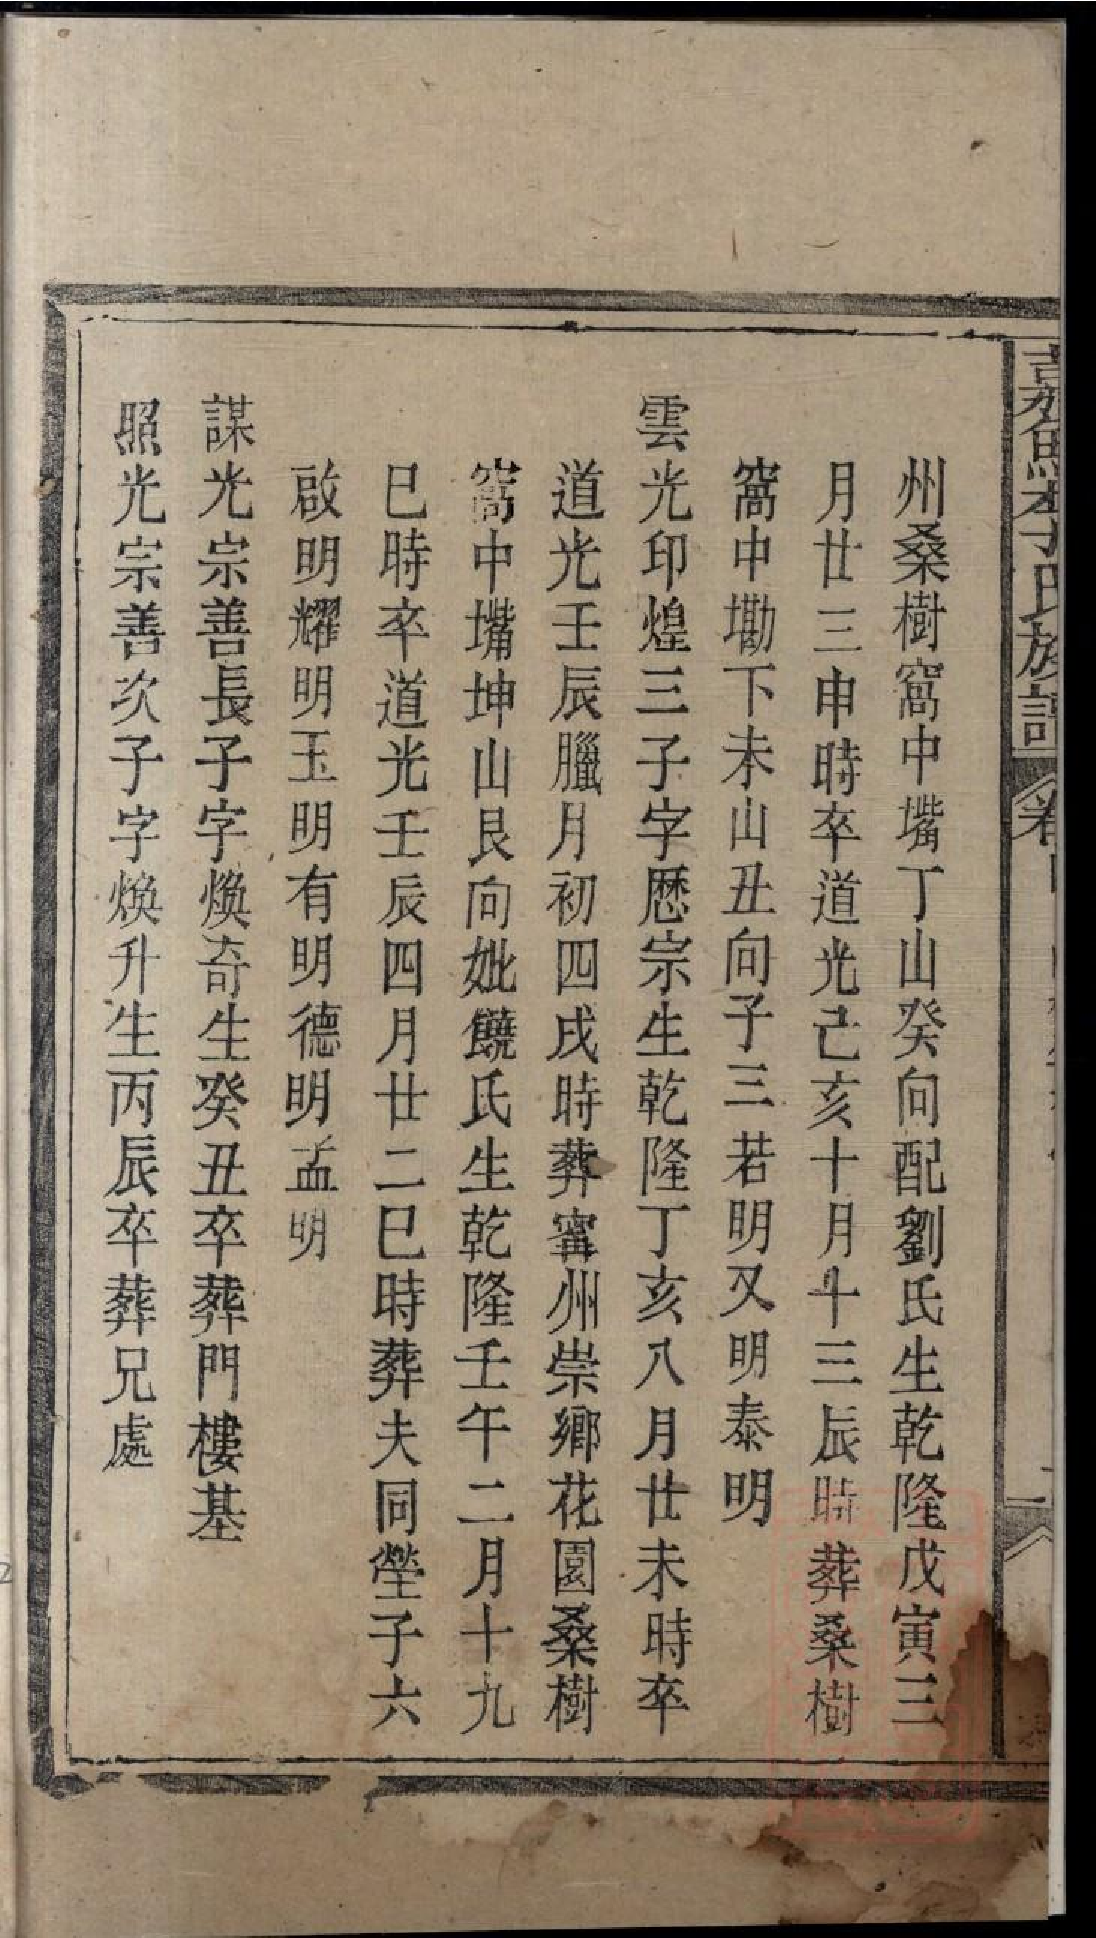 李氏族譜
州桑樹窩中嘴丁山癸向配劉氏生乾隆戊寅三
月廿三申時卒道光己亥十月十三辰時葬桑樹
窩中墈下未山丑向子三若明又明泰明
雲光印煌三子字歷宗生乾隆丁亥八月廿未時卒
道光壬辰臘月初四戌時葬甯州崇鄉花園桑樹
窩中嘴坤山艮向妣饒氏生乾隆壬午二月十九
巳時卒道光壬辰四月廿二巳時葬夫同塋子六
啟明耀明玉明有明德明孟明
謀光宗善長子字煥奇生癸丑卒葬門樓基
照光宗善次子字煥升生丙辰卒葬兄處